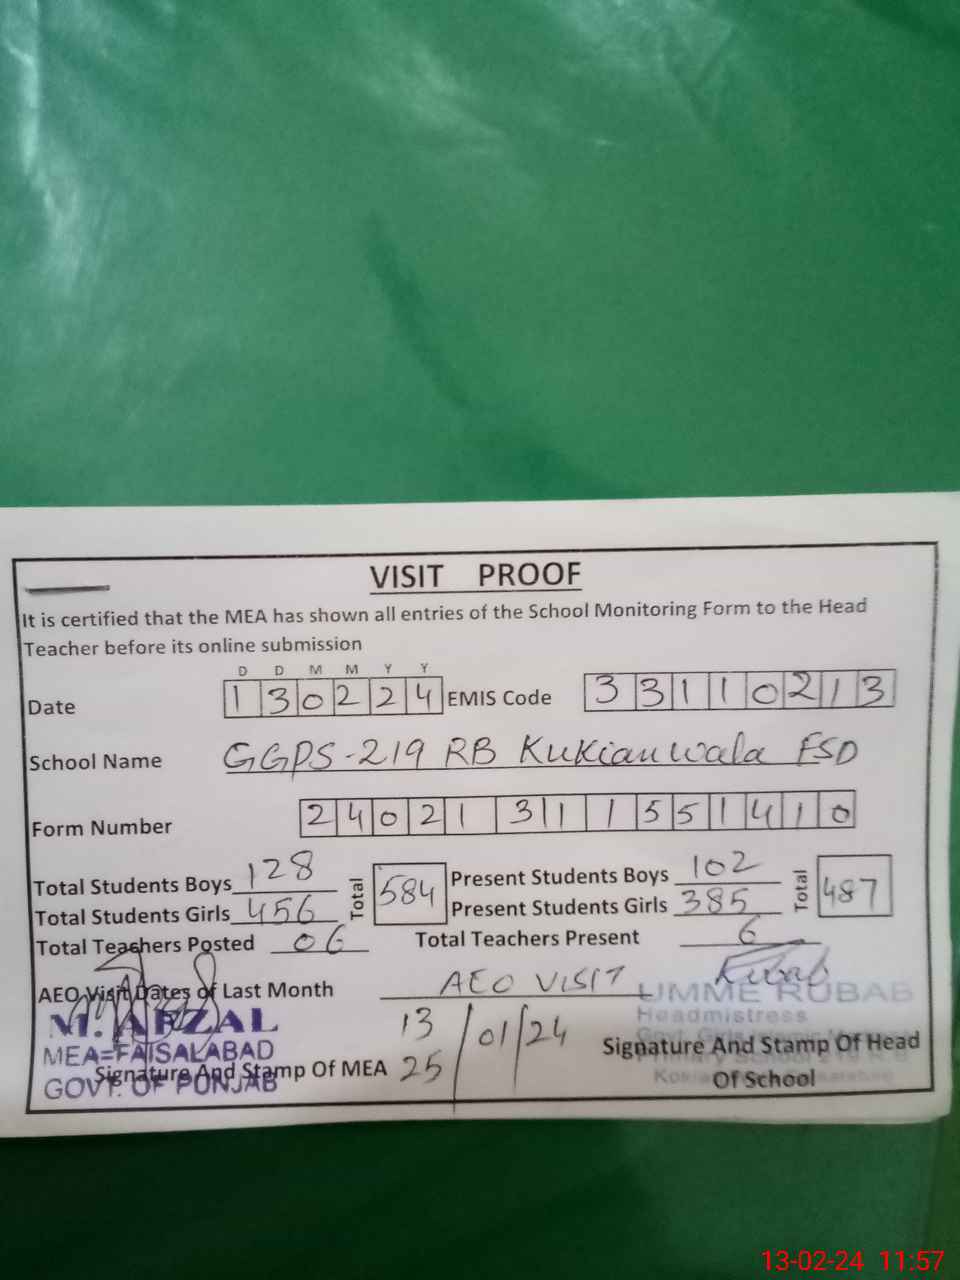 VISIT PROOF
It is certified that the MEA has shown all entries of the School Monitoring Form to the Head
Teacher before its online submission
D D M M Y Y
Date 1 3 0 2 2 4 EMIS Code 3 3 1 1 0 2 1 3
School Name GGPS-219 RB Kukianwala FSD
Form Number 2 4 0 2 1 3 1 1 1 5 5 1 4 1 0
Total Students Boys 128 Total 584 Present Students Boys 102 Total 487
Total Students Girls 456 Present Students Girls 385
Total Teachers Posted 06 Total Teachers Present 6
AEO Visit Dates of Last Month AEO VISIT
Rubab
UMME RUBAB
Headmistress
M. AFZAL
MEA=FAISALABAD
GOVT. OF PUNJAB
13 / 01 / 24
25
Signature And Stamp Of MEA
Signature And Stamp Of Head
Of School
13-02-24 11:57